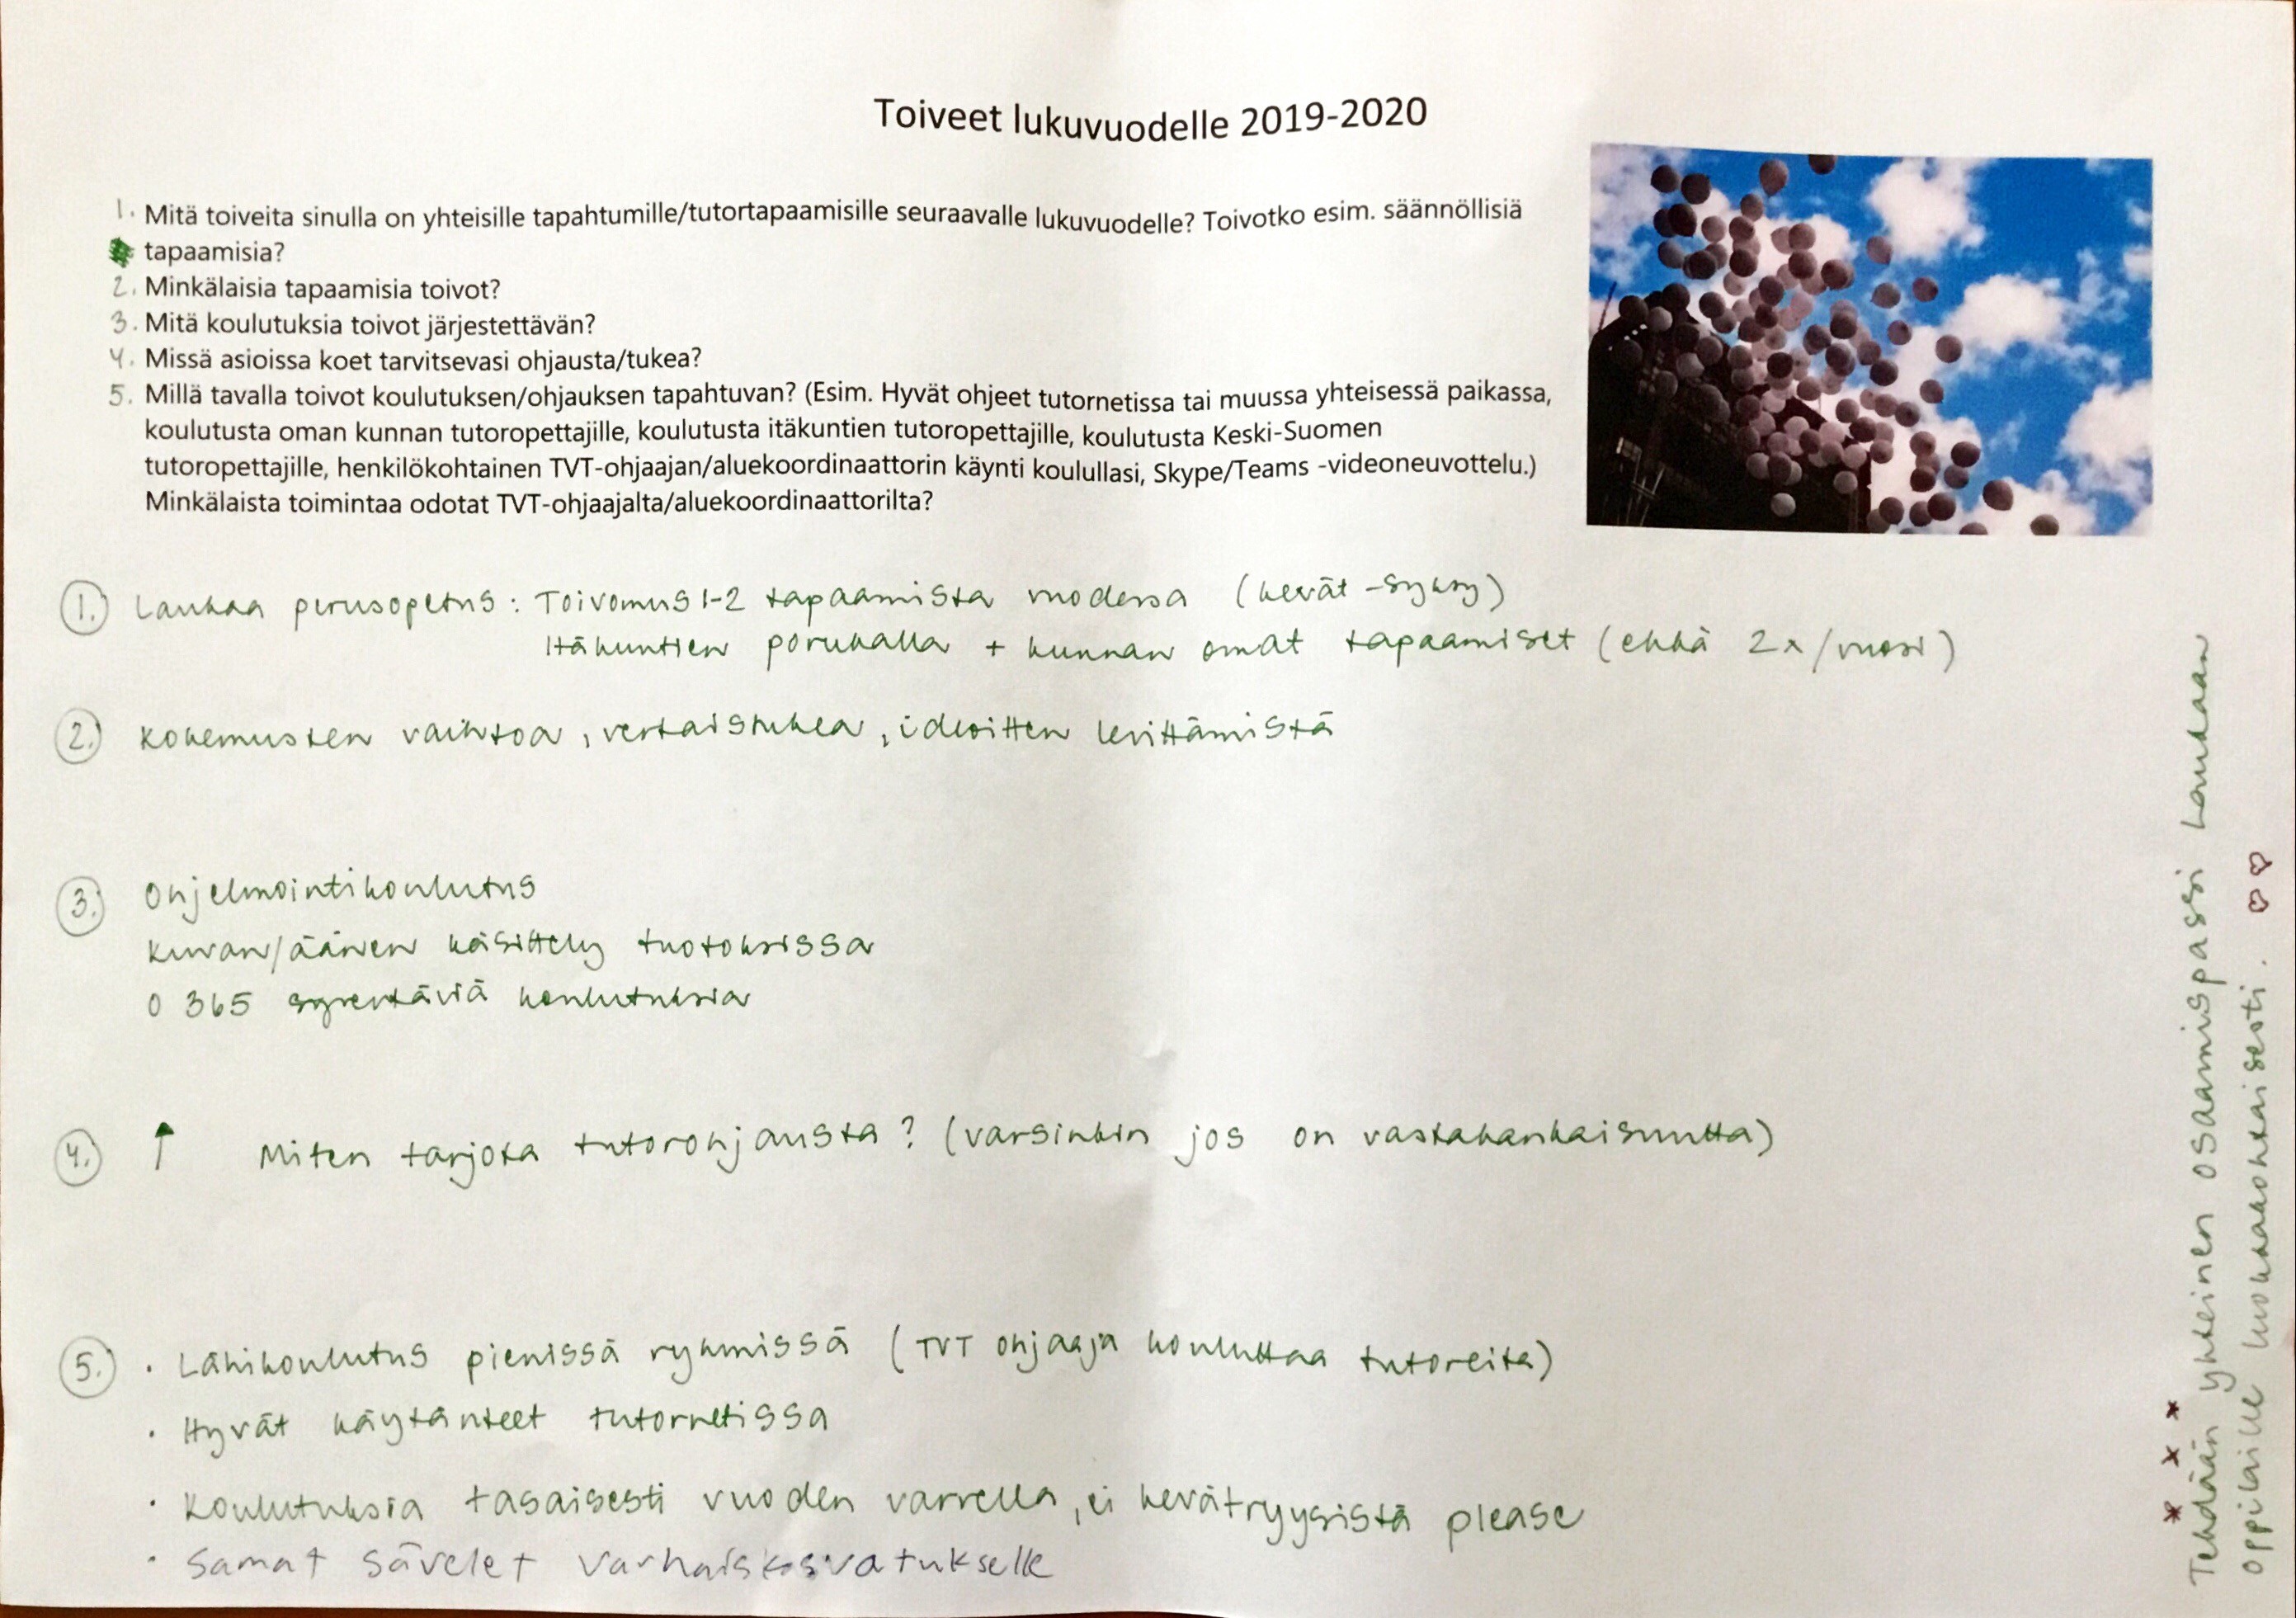 Toiveet lukuvuodelle 2019-2020
1. Mitä toiveita sinulla on yhteisille tapahtumille/tutortapaamisille seuraavalle lukuvuodelle? Toivotko esim. säännöllisiä
tapaamisia?
2. Minkälaisia tapaamisia toivot?
3. Mitä koulutuksia toivot järjestettävän?
4. Missä asioissa koet tarvitsevasi ohjausta/tukea?
5. Millä tavalla toivot koulutuksen/ohjauksen tapahtuvan? (Esim. Hyvät ohjeet tutornetissa tai muussa yhteisessä paikassa,
koulutusta oman kunnan tutoropettajille, koulutusta itäkuntien tutoropettajille, koulutusta Keski-Suomen
tutoropettajille, henkilökohtainen TVT-ohjaajan/aluekoordinaattorin käynti koulullasi, Skype/Teams -videoneuvottelu.)
Minkälaista toimintaa odotat TVT-ohjaajalta/aluekoordinaattorilta?
1. Laukaa perusopetus: Toivomus 1-2 tapaamista vuodessa (kevät-syksy)
Itäkuntien porukalla + kunnan omat tapaamiset (ehkä 2x/vuosi)
2. Kokemusten vaihtoa, vertaistukea, ideoitten levittämistä
3. Ohjelmointikoulutus
Kuvan/äänen käsittely tuotoksissa
O 365 syventäviä koulutuksia
4. ↑ Miten tarjota tutorohjausta? (varsinkin jos on vastahankaisuutta)
5. · Lähikoulutus pienissä ryhmissä (TVT ohjaaja kouluttaa tutoreita)
· Hyvät käytänteet tutornetissa
· Koulutuksia tasaisesti vuoden varrella, ei kevätryysistä please
· Samat sävelet varhaiskasvatukselle
* * *
Tehdään yhteinen osaamispassi Laukaan
oppilaille luokkakohtaisesti. ♡♡